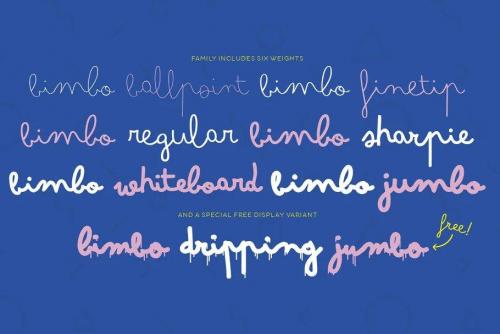 FAMILY INCLUDES SIX WEIGHTS
bimbo ballpoint bimbo finetip
bimbo regular bimbo sharpie
bimbo whiteboard bimbo jumbo
AND A SPECIAL FREE DISPLAY VARIANT
free!
bimbo dripping jumbo